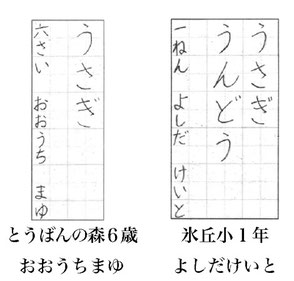 うさぎ
六さい おおうち まゆ
とうばんの森6歳
おおうちまゆ
うさぎ
うんどう
一ねん よしだ けいと
氷丘小1年
よしだけいと